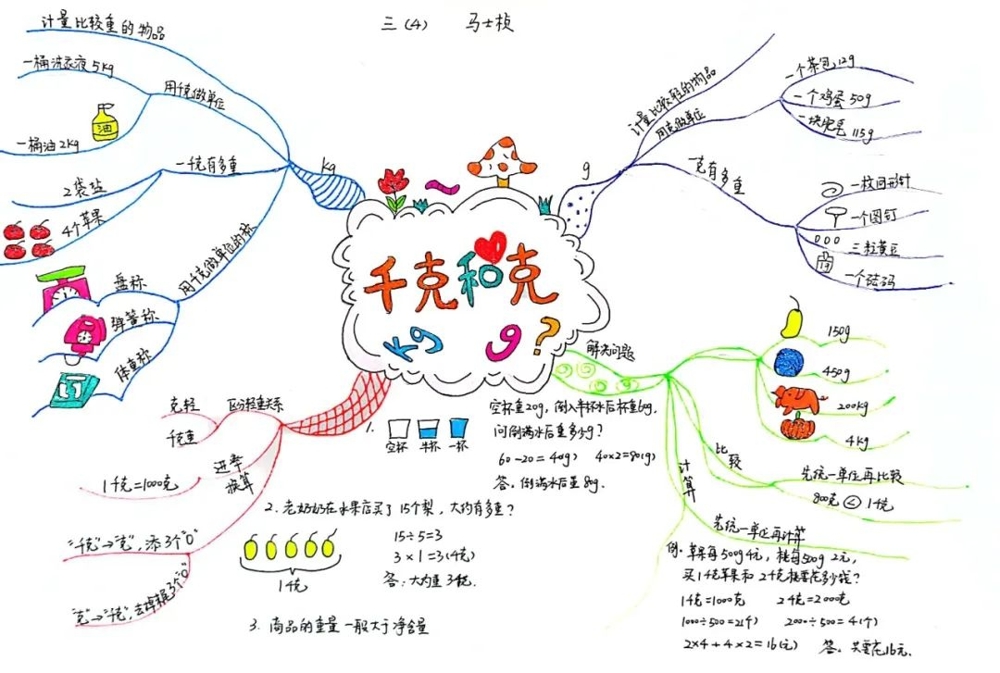 三(4) 马士桢
千克和克
kg g ?
kg
用千克做单位
计量比较重的物品
一桶洗衣液5kg
油
一桶油2kg
一千克有多重
2袋盐
4个苹果
用千克做单位的称
盘称
弹簧称
体重称
g
用克做单位
计量比较轻的物品
一个茶包12g
一个鸡蛋50g
一块肥皂115g
一克有多重
一枚回形针
一个图钉
三粒黄豆
一个砝码
区分轻重关系
克轻
千克重
进率
换算
1千克=1000克
"千克"→"克",添3个"0"
"克"→"千克",去掉末尾3个"0"
解决问题
150g
450g
200kg
4kg
比较
先统一单位再比较
800克<1千克
计算
先统一单位再计算
例:苹果每500g4元,桃每500g 2元,
买1千克苹果和2千克桃要花多少钱?
1千克=1000克 2千克=2000克
1000÷500=2(个) 2000÷500=4(个)
2×4+4×2=16(元) 答:共要花16元.
1.
空杯 半杯 一杯
空杯重20g,倒入半杯水后杯重60g.
问倒满水后重多少g?
60-20=40(g) 40×2=80(g)
答:倒满水后重80g.
2.老奶奶在水果店买了15个梨,大约有多重?
1千克
15÷5=3
3×1=3(千克)
答:大约重3千克.
3.商品的重量一般大于净含量